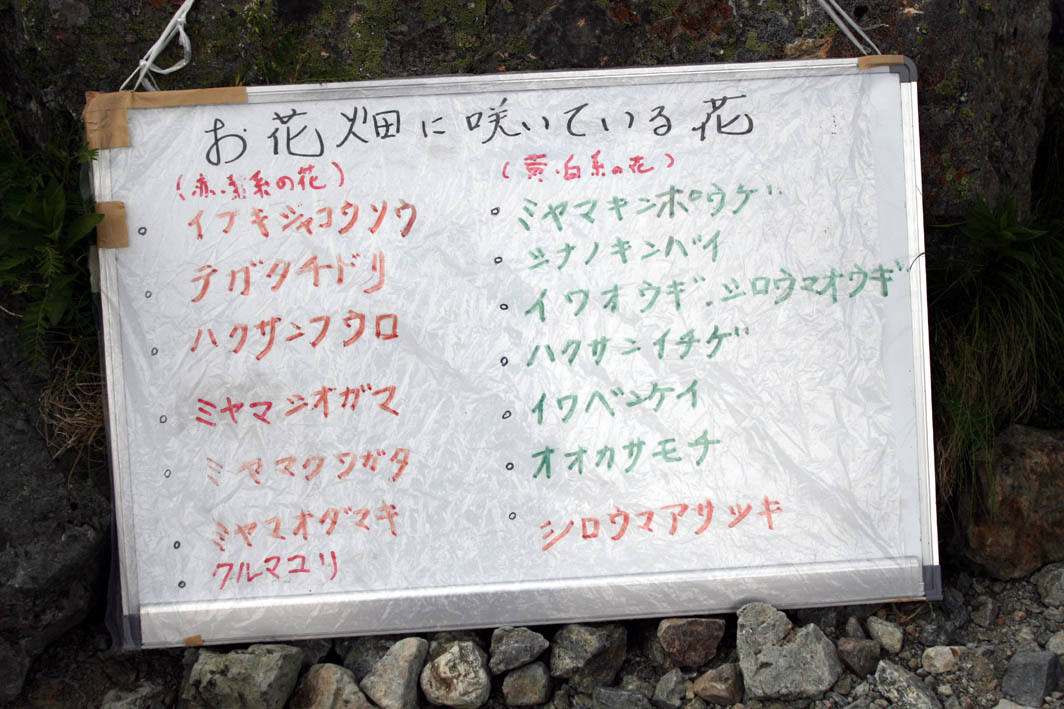 お花畑に咲いている花
(赤.紫系の花)
イブキジャコウソウ
テガタチドリ
ハクサンフウロ
ミヤマシオガマ
ミヤマクワガタ
ミヤマオダマキ
クルマユリ
(黄.白系の花)
ミヤマキンポウゲ
シナノキンバイ
イワオウギ.シロウマオウギ
ハクサンイチゲ
イワベンケイ
オオカサモチ
シロウマアサツキ